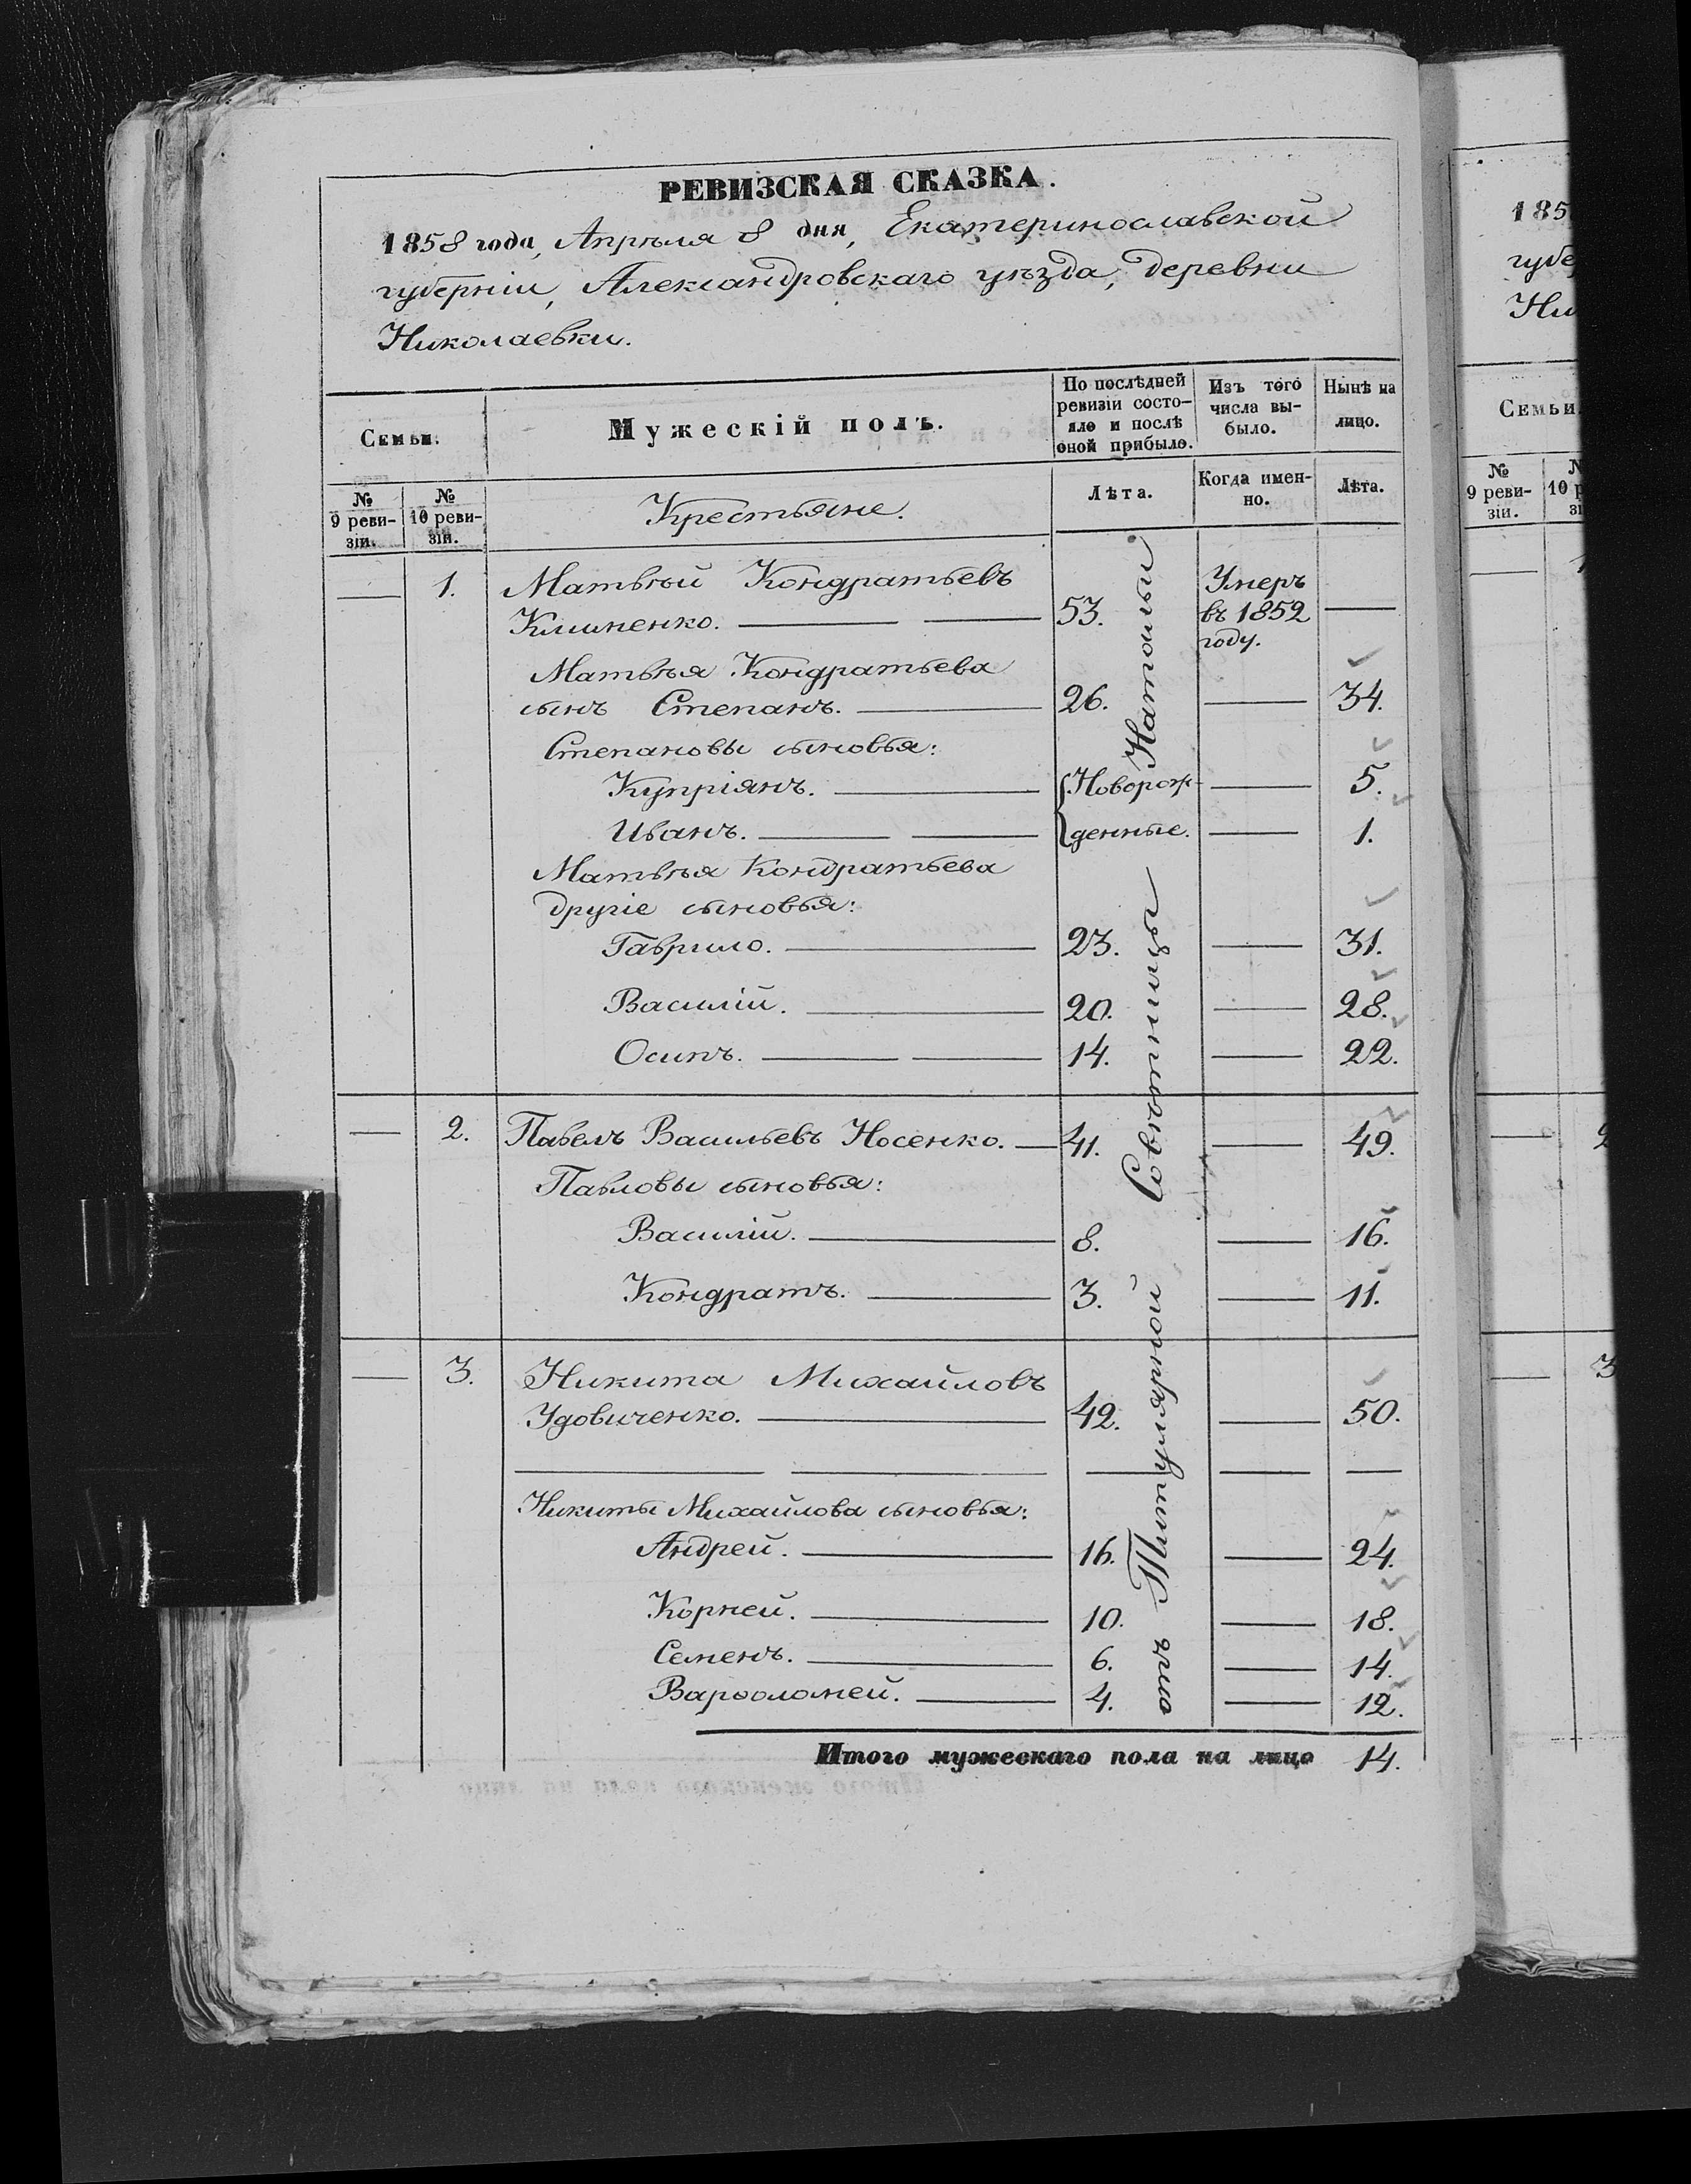 РЕВИЗСКАЯ СКАЗКА.
1858 года, Апрѣля 8 дня, Екатеринославской
губерніи, Александровскаго уѣзда, деревни
Николаевки.
Семьи.
Мужескій полъ.
По послѣдней ревизіи состояло и послѣ оной прибыло.
Изъ того числа выбыло.
Нынѣ на лицо.
№ 9 ревизіи.
№ 10 ревизіи.
Крестьяне.
Лѣта.
Когда именно.
Лѣта.
— 1. Матвѣй Кондратьевъ
Клименко. — — 53. Умеръ въ 1852 году. —
Матвѣя Кондратьева
сынъ Степанъ. — 26. — 34.
Степановы сыновья:
Купріянъ. — {Новорож- — 5.
Иванъ. — — денные. — 1.
Матвѣя Кондратьева
другіе сыновья:
Гаврило. — 23. — 31.
Василій. — 20. — 28.
Осипъ. — — 14. — 22.
— 2. Павелъ Васильевъ Носенко. — 41. — 49.
Павловы сыновья:
Василій. — 8. — 16.
Кондратъ. — 3. — 11.
— 3. Никита Михайловъ
Удовиченко. — 42. — 50.
— — — — —
Никиты Михайлова сыновья:
Андрей. — 16. — 24.
Корней. — 10. — 18.
Семенъ. — 6. — 14.
Варѳоломей. — 4. — 12.
Итого мужескаго пола на лицо 14.
отъ Титулярной Совѣтницы Натальи
185
губе
Ни
Семьи
№ 9 ревизіи.
№
10 р
зі
—
— 2
— 3